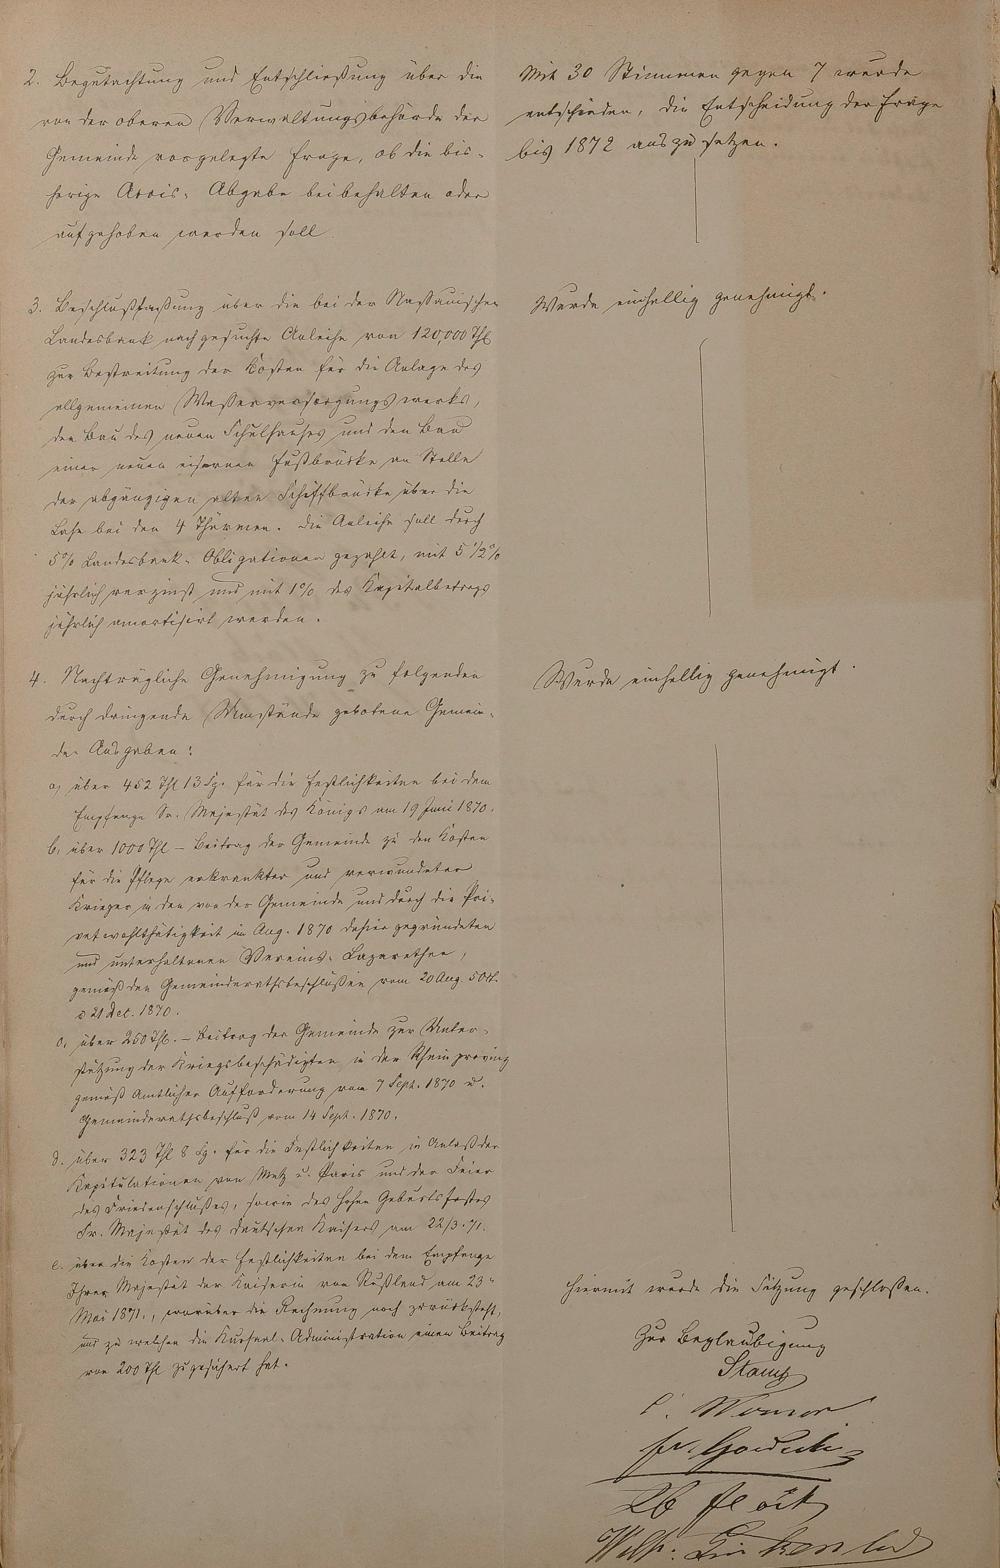 2. Begutachtung und Entschließung über die
von der oberen Verwaltungsbehörde der
Gemeinde vorgelegte Frage, ob die bis-
herige Accis-Abgabe beibehalten oder
aufgehoben werden soll.
Mit 30 Stimmen gegen 7 wurde
entschieden, die Entscheidung der Frage
bis 1872 auszusetzen.
3. Beschlußfaßung über die bei der Naßauischen
Landesbank nachgesuchte Anleihe von 120,000 Thl
zur Bestreitung der Kosten für die Anlage des
allgemeinen Waßerversorgungswerks,
den Bau des neuen Schulhauses und den Bau
einer neuen eisernen Fußbrücke an Stelle
der abgängigen alten Schiffbrücke über die
Lahn bei den 4 Thürmen. Die Anleihe soll durch
5% Landesbank-Obligationen gezahlt, mit 5 1/2%
jährlich verzinst und mit 1% des Kapitalbetrags
jährlich amortisirt werden.
Wurde einhellig genehmigt.
4. Nachträgliche Genehmigung zu folgenden
durch dringende Umstände gebotene Gemein-
de-Ausgaben:
a, über 452 Thl 13 Sg. für die Festlichkeiten bei dem
Empfange Sr. Majestät des Königs am 19 Juni 1870.
b, über 1000 Thl – Beitrag der Gemeinde zu den Kosten
für die Pflege erkrankter und verwundeter
Krieger in den von der Gemeinde und durch die Pri-
vatwohlthätigkeit im Aug. 1870 dahier gegründeten
und unterhaltenen Vereins-Lazarethen,
gemäß den Gemeinderathsbeschlüßen vom 20 Aug. 5 Oct.
& 21 Dec. 1870.
c, über 250 Thl. – Beitrag der Gemeinde zur Unter-
stützung der Kriegsbeschädigten in der Rheinprovinz
gemäß Amtlicher Aufforderung vom 7 Sept. 1870 u.
Gemeinderathsbeschluß vom 14 Sept. 1870.
d. über 323 Thl 8 Sg. für die Festlichkeiten in Anlaß der
Kapitulationen von Metz u. Paris und der Feier
des Friedenschlußes, sowie des hohen Geburtsfestes
Sr. Majestät des deutschen Kaisers am 22/3.71.
e. über die Kosten der Festlichkeiten bei dem Empfange
Ihrer Majestät der Kaiserin von Rußland am 23n
Mai 1871., worüber die Rechnung noch zurücksteht,
und zu welchen die Kursaal-Administration einen Beitrag
von 200 Thl zugesichert hat.
Wurde einhellig genehmigt.
Hiermit wurde die Sitzung geschloßen.
Zur Beglaubigung
Stamp
Wilh: